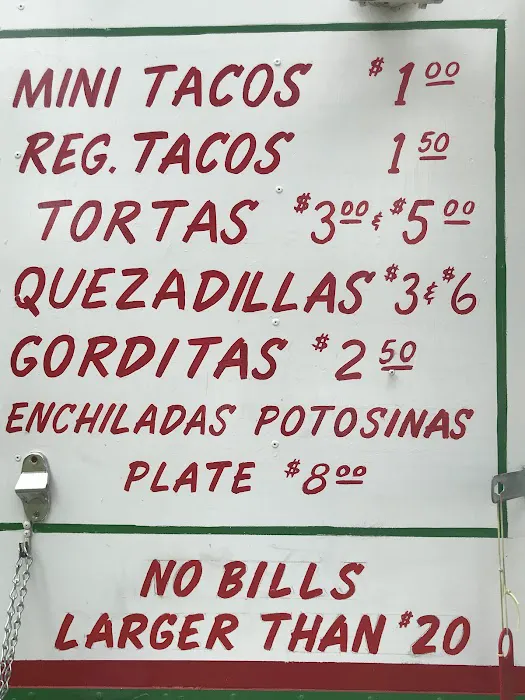 MINI TACOS $1.00
REG. TACOS 1.50
TORTAS $3.00 & $5.00
QUEZADILLAS $3 & $6
GORDITAS $2.50
ENCHILADAS POTOSINAS
PLATE $8.00
NO BILLS
LARGER THAN $20